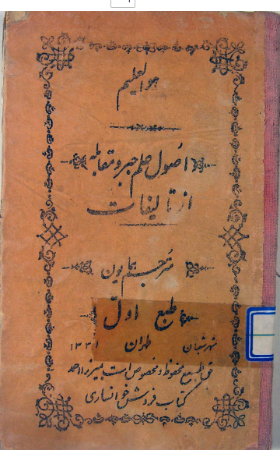 هوالعلیم
اصول علم جبر و مقابله
از تالیفات
مترجم همایون
طبع اول
شهر شعبان طهران ۱۳۳۱
حق الطبع محفوظ و مخصوص است بمیرزا احمد
کتاب فروش خوانساری